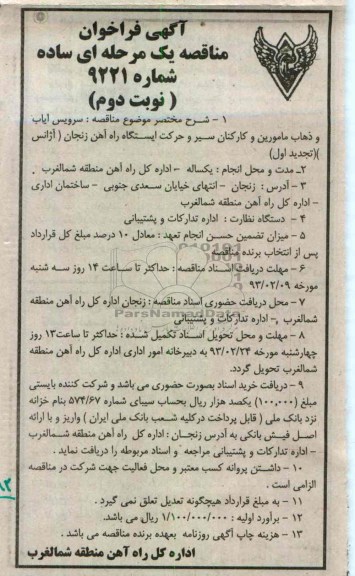 آگهی فراخوان
مناقصه یک مرحله ای ساده
شماره ۹۲۲۱
( نوبت دوم )
۱ – شرح مختصر موضوع مناقصه : سرویس ایاب
و ذهاب مامورین و کارکنان سیر و حرکت ایستگاه راه آهن زنجان ( آژانس
)(تجدید اول)
۲ـ مدت و محل انجام : یکساله – اداره کل راه آهن منطقه شمالغرب
۳ – آدرس : زنجان – انتهای خیابان سعدی جنوبی – ساختمان اداری
– اداره کل راه آهن منطقه شمالغرب
۴ – دستگاه نظارت : اداره تدارکات و پشتیبانی
۵ – میزان تضمین حسن انجام تعهد : معادل ۱۰ درصد مبلغ کل قرارداد
پس از انتخاب برنده مناقصه
۶ – مهلت دریافت اسناد مناقصه : حداکثر تا ساعت ۱۴ روز سه شنبه
مورخه ۹۳/۰۲/۰۹
۷ – محل دریافت حضوری اسناد مناقصه : زنجان اداره کل راه آهن منطقه
شمالغرب – اداره تدارکات و پشتیبانی
ParsNamadData
۸ – مهلت و محل تحویل اسناد تکمیل شده : حداکثر تا ساعت۱۳ روز
چهارشنبه مورخه ۹۳/۰۲/۲۴ به دبیرخانه امور اداری اداره کل راه آهن منطقه
شمالغرب تحویل گردد.
۹ – دریافت خرید اسناد بصورت حضوری می باشد و شرکت کننده بایستی
مبلغ (۱۰۰,۰۰۰) یکصد هزار ریال بحساب سیبای شماره ۵۷۴/۶۷ بنام خزانه
نزد بانک ملی ( قابل پرداخت درکلیه شعب بانک ملی ایران ) واریز و با ارائه
اصل فیش بانکی به آدرس زنجان : اداره کل راه آهن منطقه شمالغرب
– اداره تدارکات و پشتیبانی مراجعه و اسناد مربوطه را دریافت نماید .
۱۰ – داشتن پروانه کسب معتبر و محل فعالیت جهت شرکت در مناقصه
الزامی است .
۱۱ – به مبلغ قرارداد هیچگونه تعدیل تعلق نمی گیرد .
۱۲ – برآورد اولیه : ۱/۱۰۰/۰۰۰/۰۰۰ ریال می باشد.
۱۳ – هزینه چاپ آگهی روزنامه بعهده برنده مناقصه می باشد .
اداره کل راه آهن منطقه شمالغرب